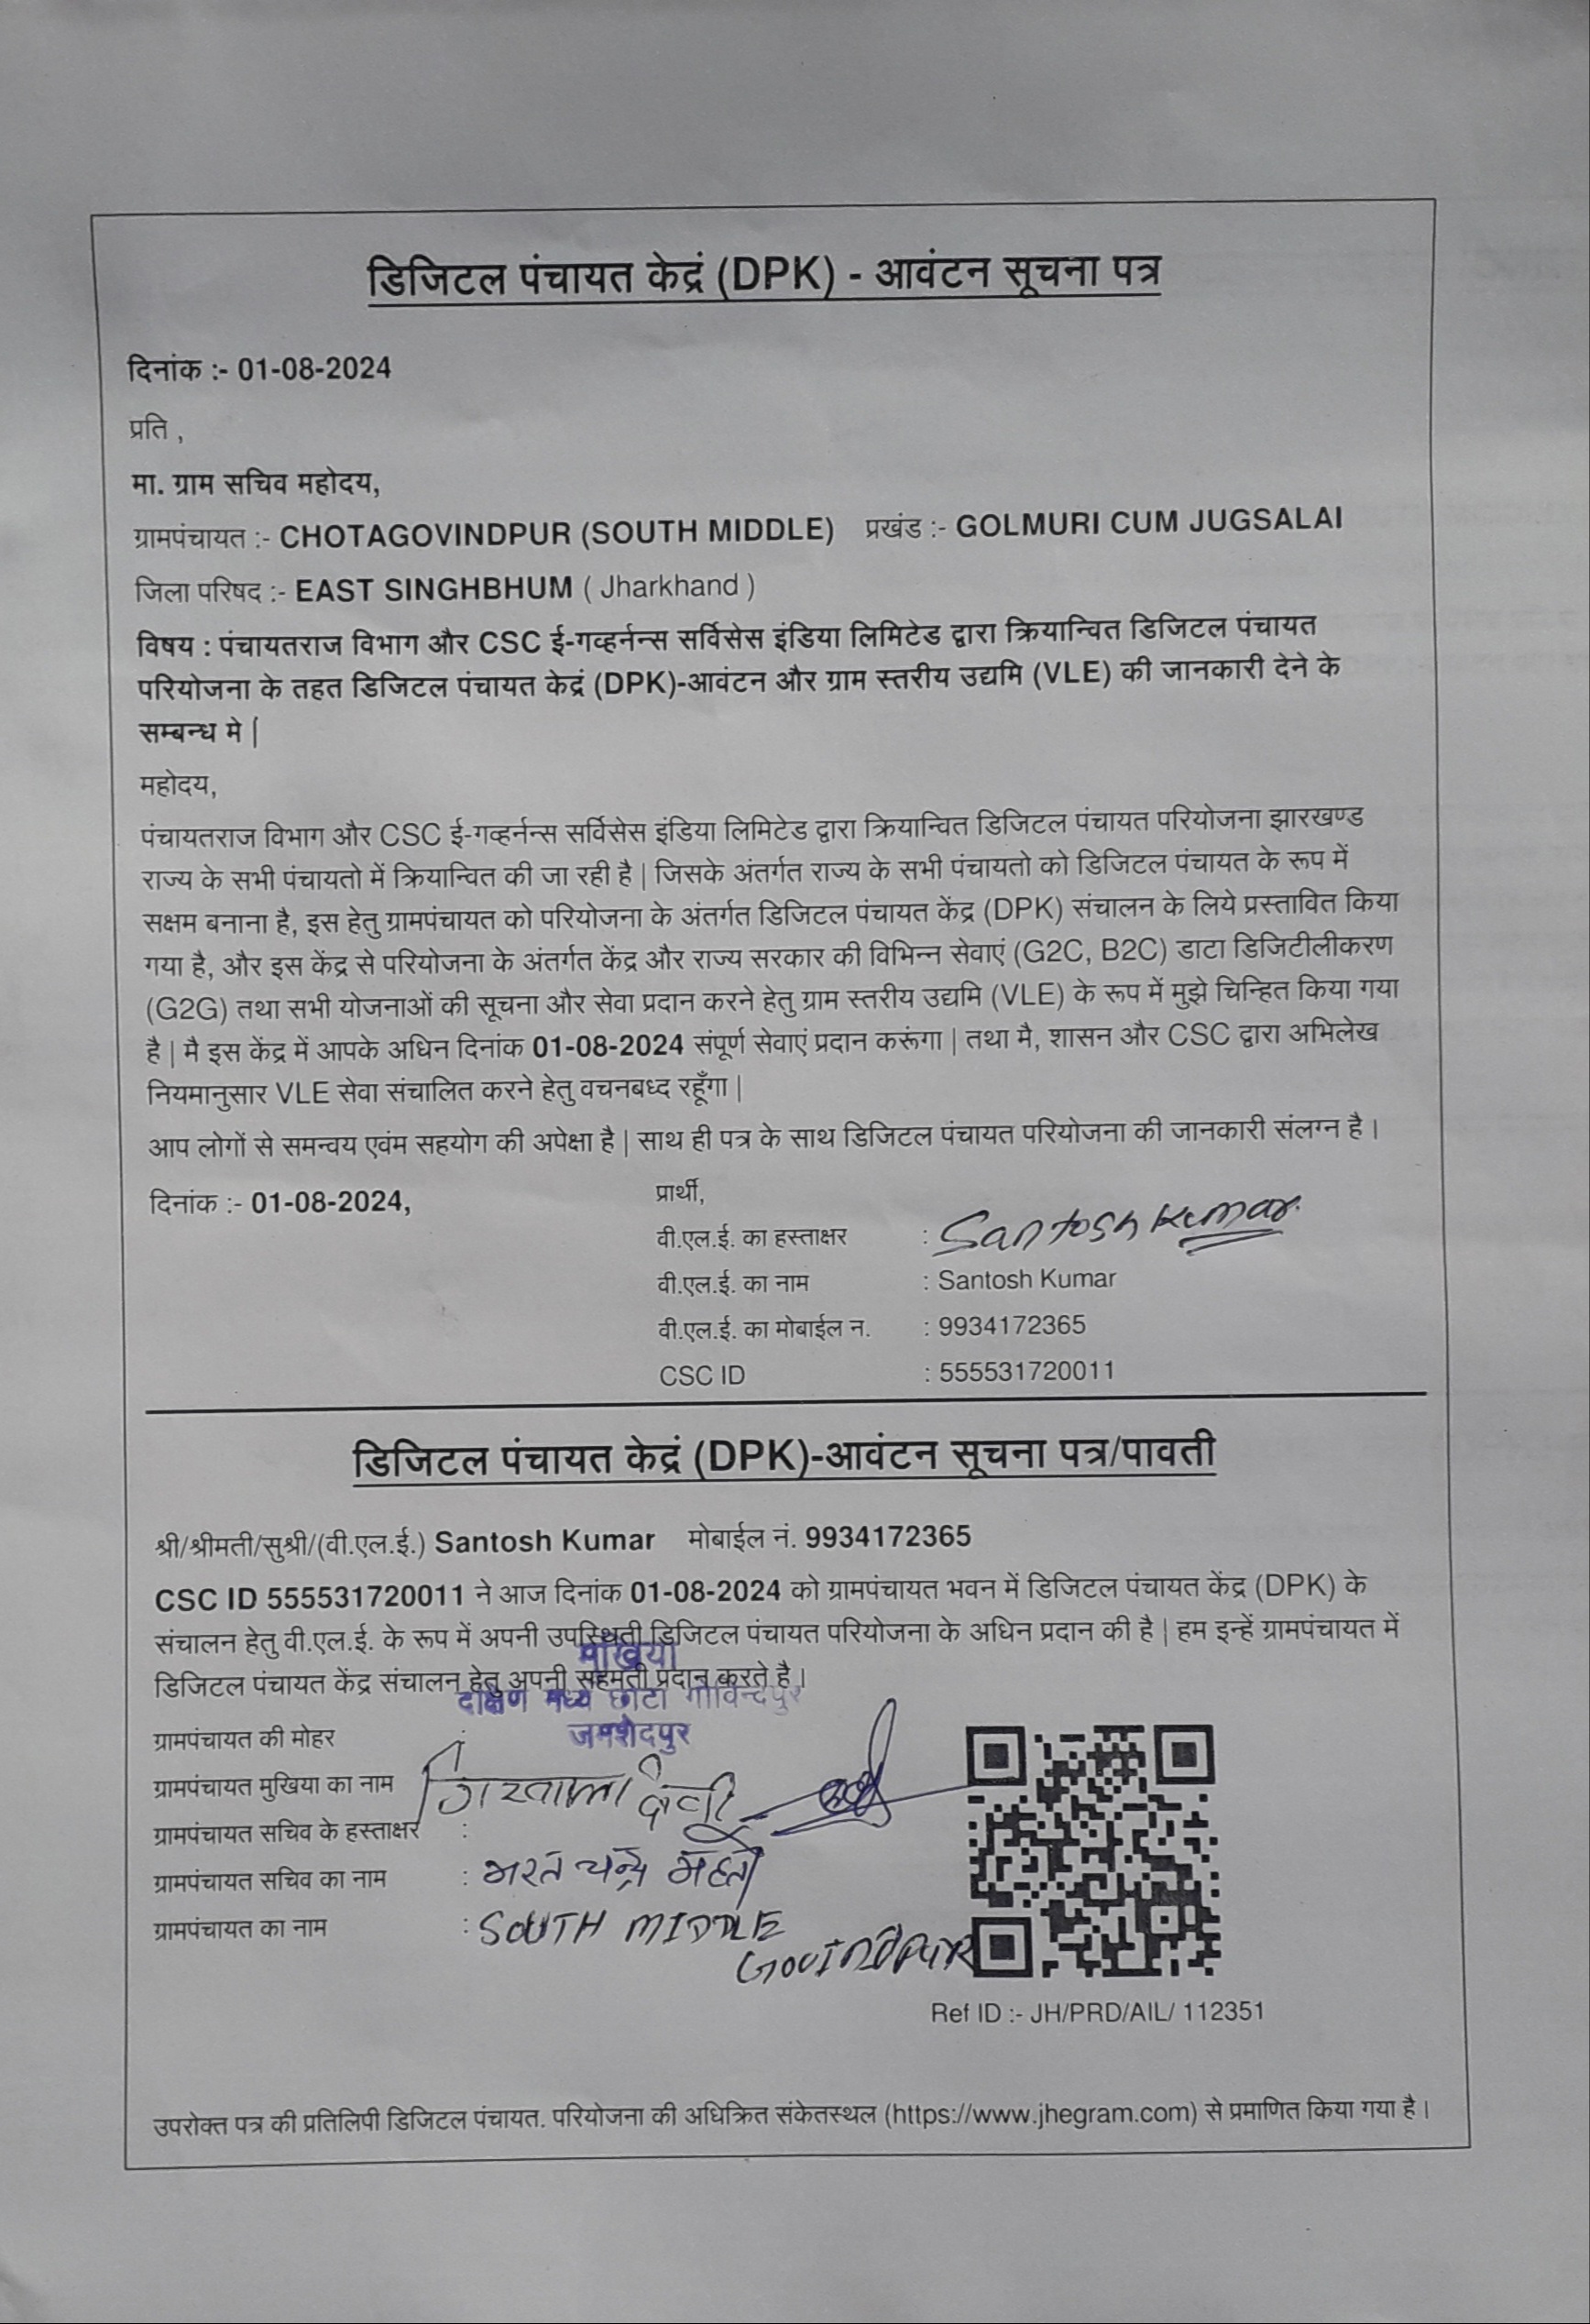 डिजिटल पंचायत केद्रं (DPK) - आवंटन सूचना पत्र
दिनांक :- 01-08-2024
प्रति ,
मा. ग्राम सचिव महोदय,
ग्रामपंचायत :- CHOTAGOVINDPUR (SOUTH MIDDLE) प्रखंड :- GOLMURI CUM JUGSALAI
जिला परिषद :- EAST SINGHBHUM ( Jharkhand )
विषय : पंचायतराज विभाग और CSC ई-गव्हर्नन्स सर्विसेस इंडिया लिमिटेड द्वारा क्रियान्वित डिजिटल पंचायत
परियोजना के तहत डिजिटल पंचायत केद्रं (DPK)-आवंटन और ग्राम स्तरीय उद्यमि (VLE) की जानकारी देने के
सम्बन्ध मे |
महोदय,
पंचायतराज विभाग और CSC ई-गव्हर्नन्स सर्विसेस इंडिया लिमिटेड द्वारा क्रियान्वित डिजिटल पंचायत परियोजना झारखण्ड
राज्य के सभी पंचायतो में क्रियान्वित की जा रही है | जिसके अंतर्गत राज्य के सभी पंचायतो को डिजिटल पंचायत के रूप में
सक्षम बनाना है, इस हेतु ग्रामपंचायत को परियोजना के अंतर्गत डिजिटल पंचायत केंद्र (DPK) संचालन के लिये प्रस्तावित किया
गया है, और इस केंद्र से परियोजना के अंतर्गत केंद्र और राज्य सरकार की विभिन्न सेवाएं (G2C, B2C) डाटा डिजिटीलीकरण
(G2G) तथा सभी योजनाओं की सूचना और सेवा प्रदान करने हेतु ग्राम स्तरीय उद्यमि (VLE) के रूप में मुझे चिन्हित किया गया
है | मै इस केंद्र में आपके अधिन दिनांक 01-08-2024 संपूर्ण सेवाएं प्रदान करूंगा | तथा मै, शासन और CSC द्वारा अभिलेख
नियमानुसार VLE सेवा संचालित करने हेतु वचनबध्द रहूँगा |
आप लोगों से समन्वय एवंम सहयोग की अपेक्षा है | साथ ही पत्र के साथ डिजिटल पंचायत परियोजना की जानकारी संलग्न है ।
दिनांक :- 01-08-2024,
प्रार्थी,
वी.एल.ई. का हस्ताक्षर : Santosh Kumar
वी.एल.ई. का नाम : Santosh Kumar
वी.एल.ई. का मोबाईल न. : 9934172365
CSC ID : 555531720011
डिजिटल पंचायत केद्रं (DPK)-आवंटन सूचना पत्र/पावती
श्री/श्रीमती/सुश्री/(वी.एल.ई.) Santosh Kumar मोबाईल नं. 9934172365
CSC ID 555531720011 ने आज दिनांक 01-08-2024 को ग्रामपंचायत भवन में डिजिटल पंचायत केंद्र (DPK) के
संचालन हेतु वी.एल.ई. के रूप में अपनी उपस्थिती डिजिटल पंचायत परियोजना के अधिन प्रदान की है | हम इन्हें ग्रामपंचायत में
मुखिया
डिजिटल पंचायत केंद्र संचालन हेतु अपनी सहमती प्रदान करते है ।
दक्षिण मध्य छोटा गोविन्दपुर
जमशेदपुर
ग्रामपंचायत की मोहर :
ग्रामपंचायत मुखिया का नाम
ग्रामपंचायत सचिव के हस्ताक्षर :
ग्रामपंचायत सचिव का नाम : भरत चन्द्र महतो
ग्रामपंचायत का नाम : SOUTH MIDDLE
GOVINDPUR
Ref ID :- JH/PRD/AIL/ 112351
उपरोक्त पत्र की प्रतिलिपी डिजिटल पंचायत. परियोजना की अधिक्रित संकेतस्थल (https://www.jhegram.com) से प्रमाणित किया गया है ।